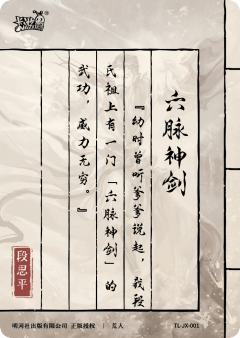 六脉神剑
『幼时曾听爹爹说起，我段
氏祖上有一门「六脉神剑」的
武功，威力无穷。』
段思平
明河社出版有限公司 正版授权 | 荒人
TL-JX-001